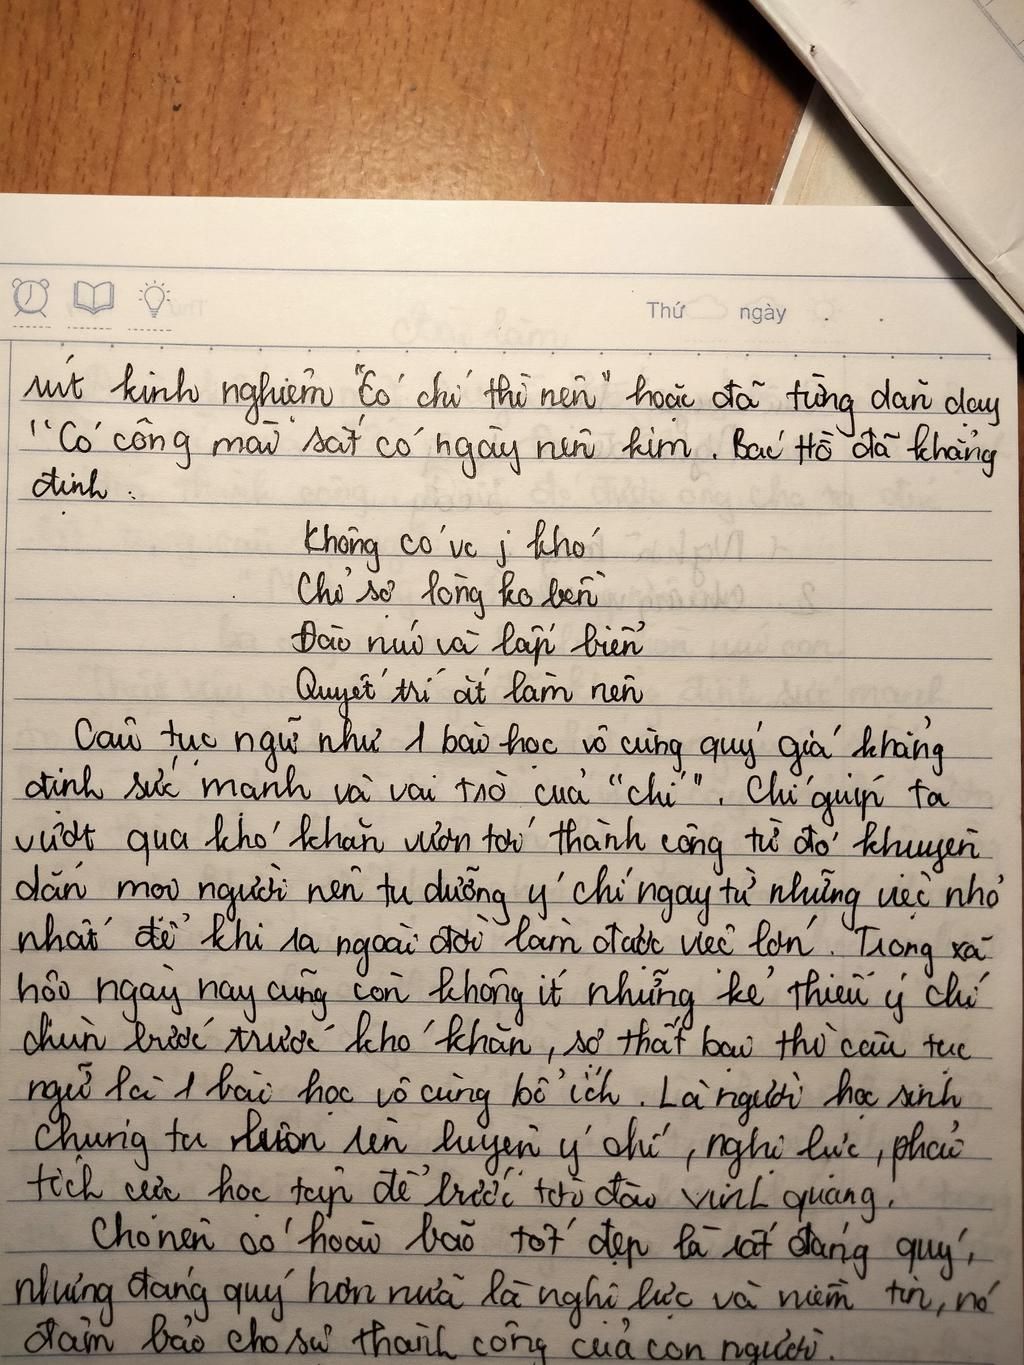 Thứ ngày . .
rút kinh nghiệm "Có chí thì nên" hoặc đã từng dăn dạy
"Có công mài sắt có ngày nên kim. Bác Hồ đã khẳng
định :
Không có vc j khó
Chỉ sợ lòng ko bền
Đào núi và lấp biển
Quyết trí ắt làm nên
Câu tục ngữ như 1 bài học vô cùng quý giá khẳng
định sức mạnh và vai trò của "chí". Chí giúp ta
vượt qua khó khăn vươn tới thành công từ đó khuyên
dăn mọi người nên tu dưỡng ý chí ngay từ những việc nhỏ
nhất để khi ra ngoài đời làm được việc lớn. Trong xã
hội ngày nay cũng còn không ít những kẻ thiếu ý chí
chùn bước trước khó khăn, sợ thất bại thì câu tục
ngữ là 1 bài học vô cùng bổ ích. Là người học sinh
chúng ta luôn rèn luyện ý chí, nghị lực, phải
tích cực học tập để bước tới đài vinh quang.
Cho nên có hoài bão tốt đẹp là rất đáng quý,
nhưng đáng quý hơn nữa là nghị lực và niềm tin, nó
đảm bảo cho sự thành công của con người.